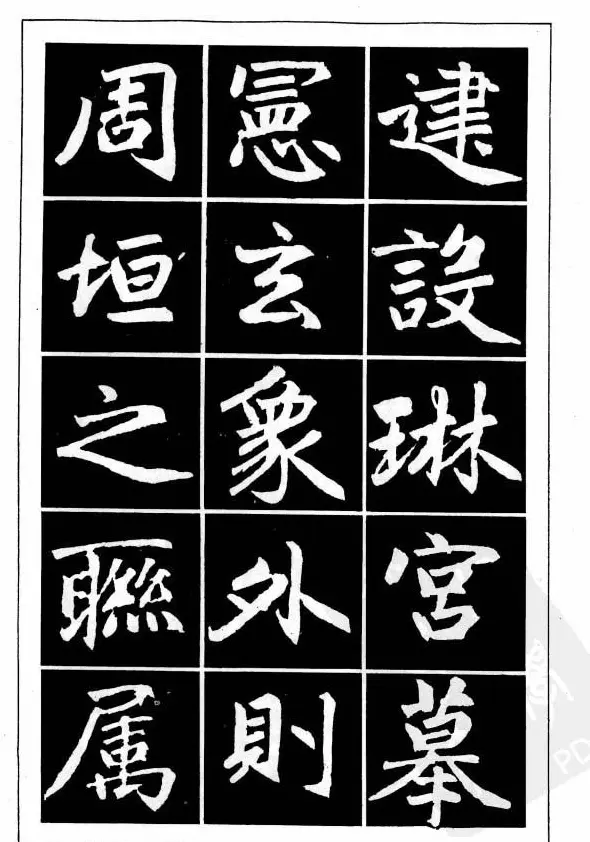 建設琳宮摹
憲玄象外則
周垣之聯属